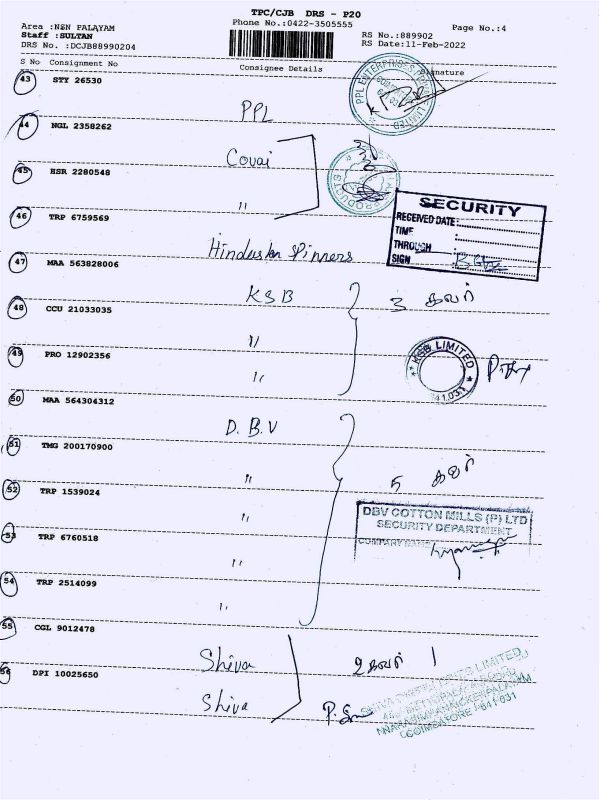 TPC/CJB DRS - P20
Area :N&N PALAYAM
Phone No.:0422-3505555
Page No.:4
Staff :SULTAN
RS No.:889902
DRS No. :DCJB88990204
RS Date:11-Feb-2022
S No Consignment No Consignee Details Signature
43 STY 26530
PPL
PPL ENTERPRISES PRIVATE LIMITED
44 NGL 2358262
Covai
PRODUCTS
45 HSR 2280548
"
46 TRP 6759569
SECURITY
RECEIVED DATE:
TIME :
THROUGH :
SIGN :
Hindustan Spinners
47 MAA 563828006
KSB 3 கவர்
48 CCU 21033035
"
49 PRO 12902356
"
KSB LIMITED
641 031
50 MAA 564304312
D.B.V
51 TMG 200170900
" 5 கவர்
52 TRP 1539024
"
DBV COTTON MILLS (P) LTD
SECURITY DEPARTMENT
COMPANY NAME
53 TRP 6760518
"
54 TRP 2514099
"
55 CGL 9012478
Shiva 2 கவர்
56 DPI 10025650
Shiva
LIMITED
COIMBATORE - 641 031